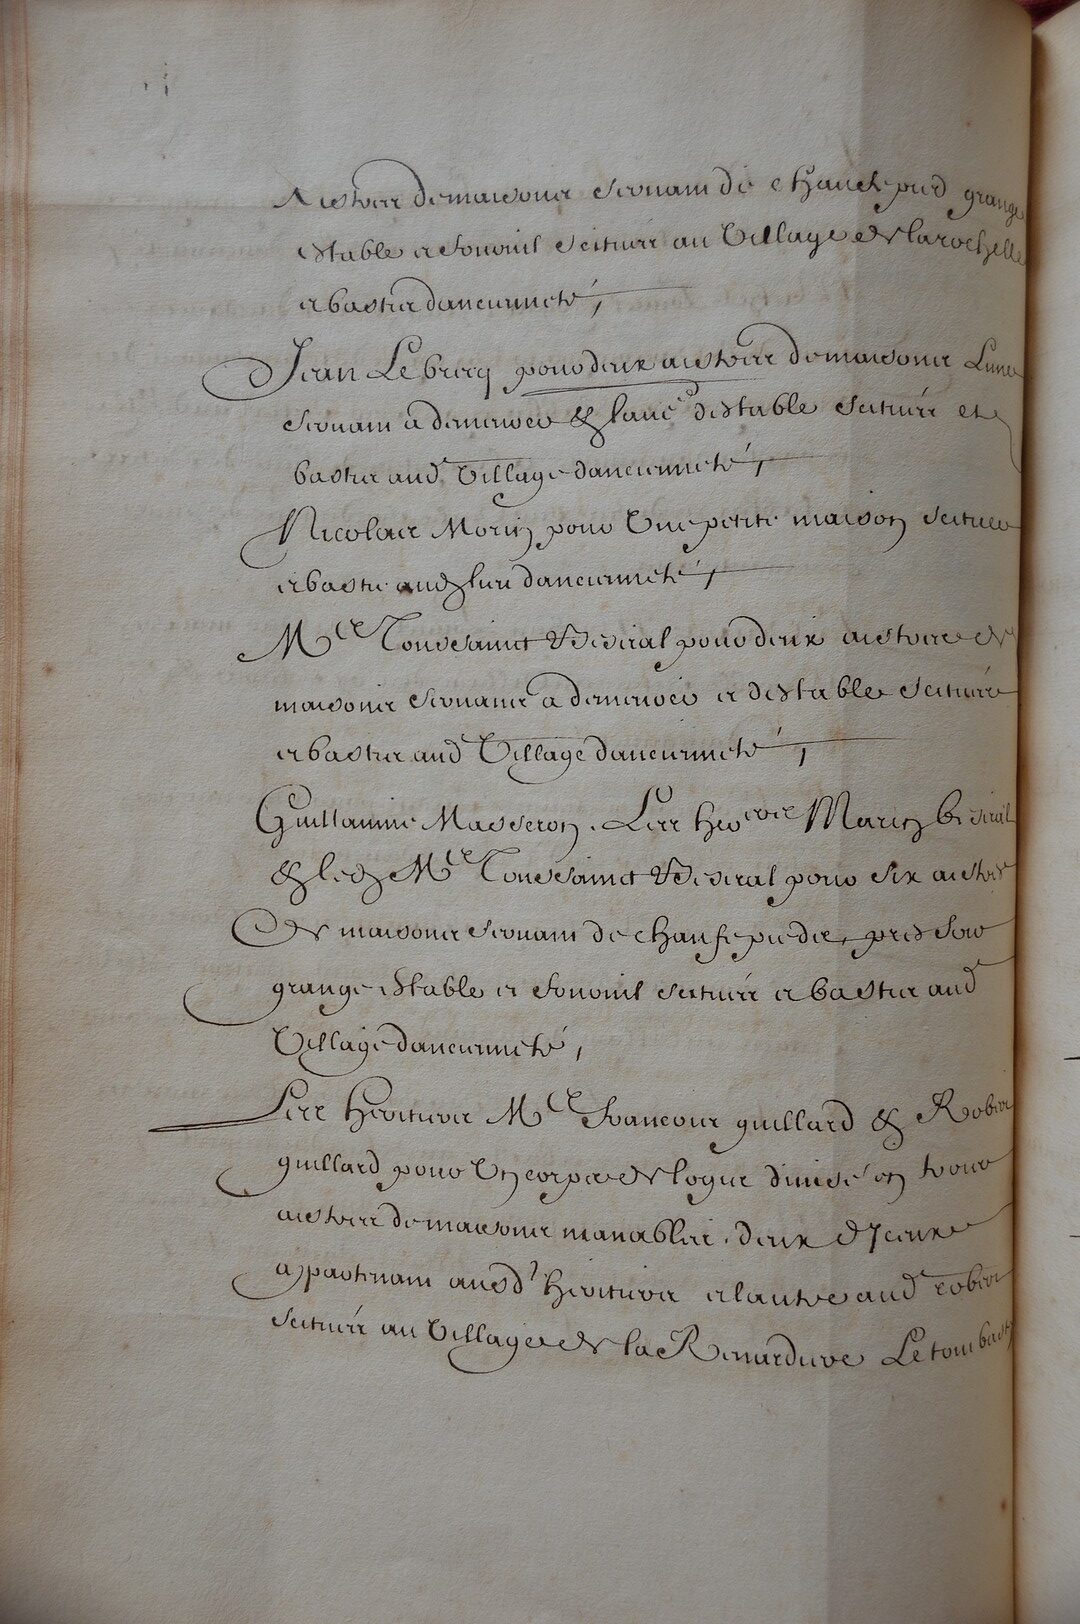 aistres de maisons servant de chaufepied grange
estable et fournil scituée au Village de la rochelle
et basties dancienneté,
Jean Lebrecq pour deux aistres de maisons Lune
servant a demeurer & lautre destable scituée et
basties aud Village dancienneté,
Nicolas Morin pour Une petite maison scituée
et bastie aud lieu dancienneté,
Mre Toussainct pour deux aistres de
maisons servans a demeurer et destable scituées
et basties aud Village dancienneté,
Guillaume Masseron. Les herers Marin
& led Mre Toussainct pour six aistres
De maisons servant de chaufepieds, pressoir
grange estable et fournil scituées et basties aud
Village dancienneté,
Les heritiers Mre Francois guillard & Robert
guillard pour Un corps de logis divisé en trois
aistres de maisons manables. deux Diceux
appartenant ausd heritiers et lautre aud robert
scituées au Village de la Renardiere Le tout basty